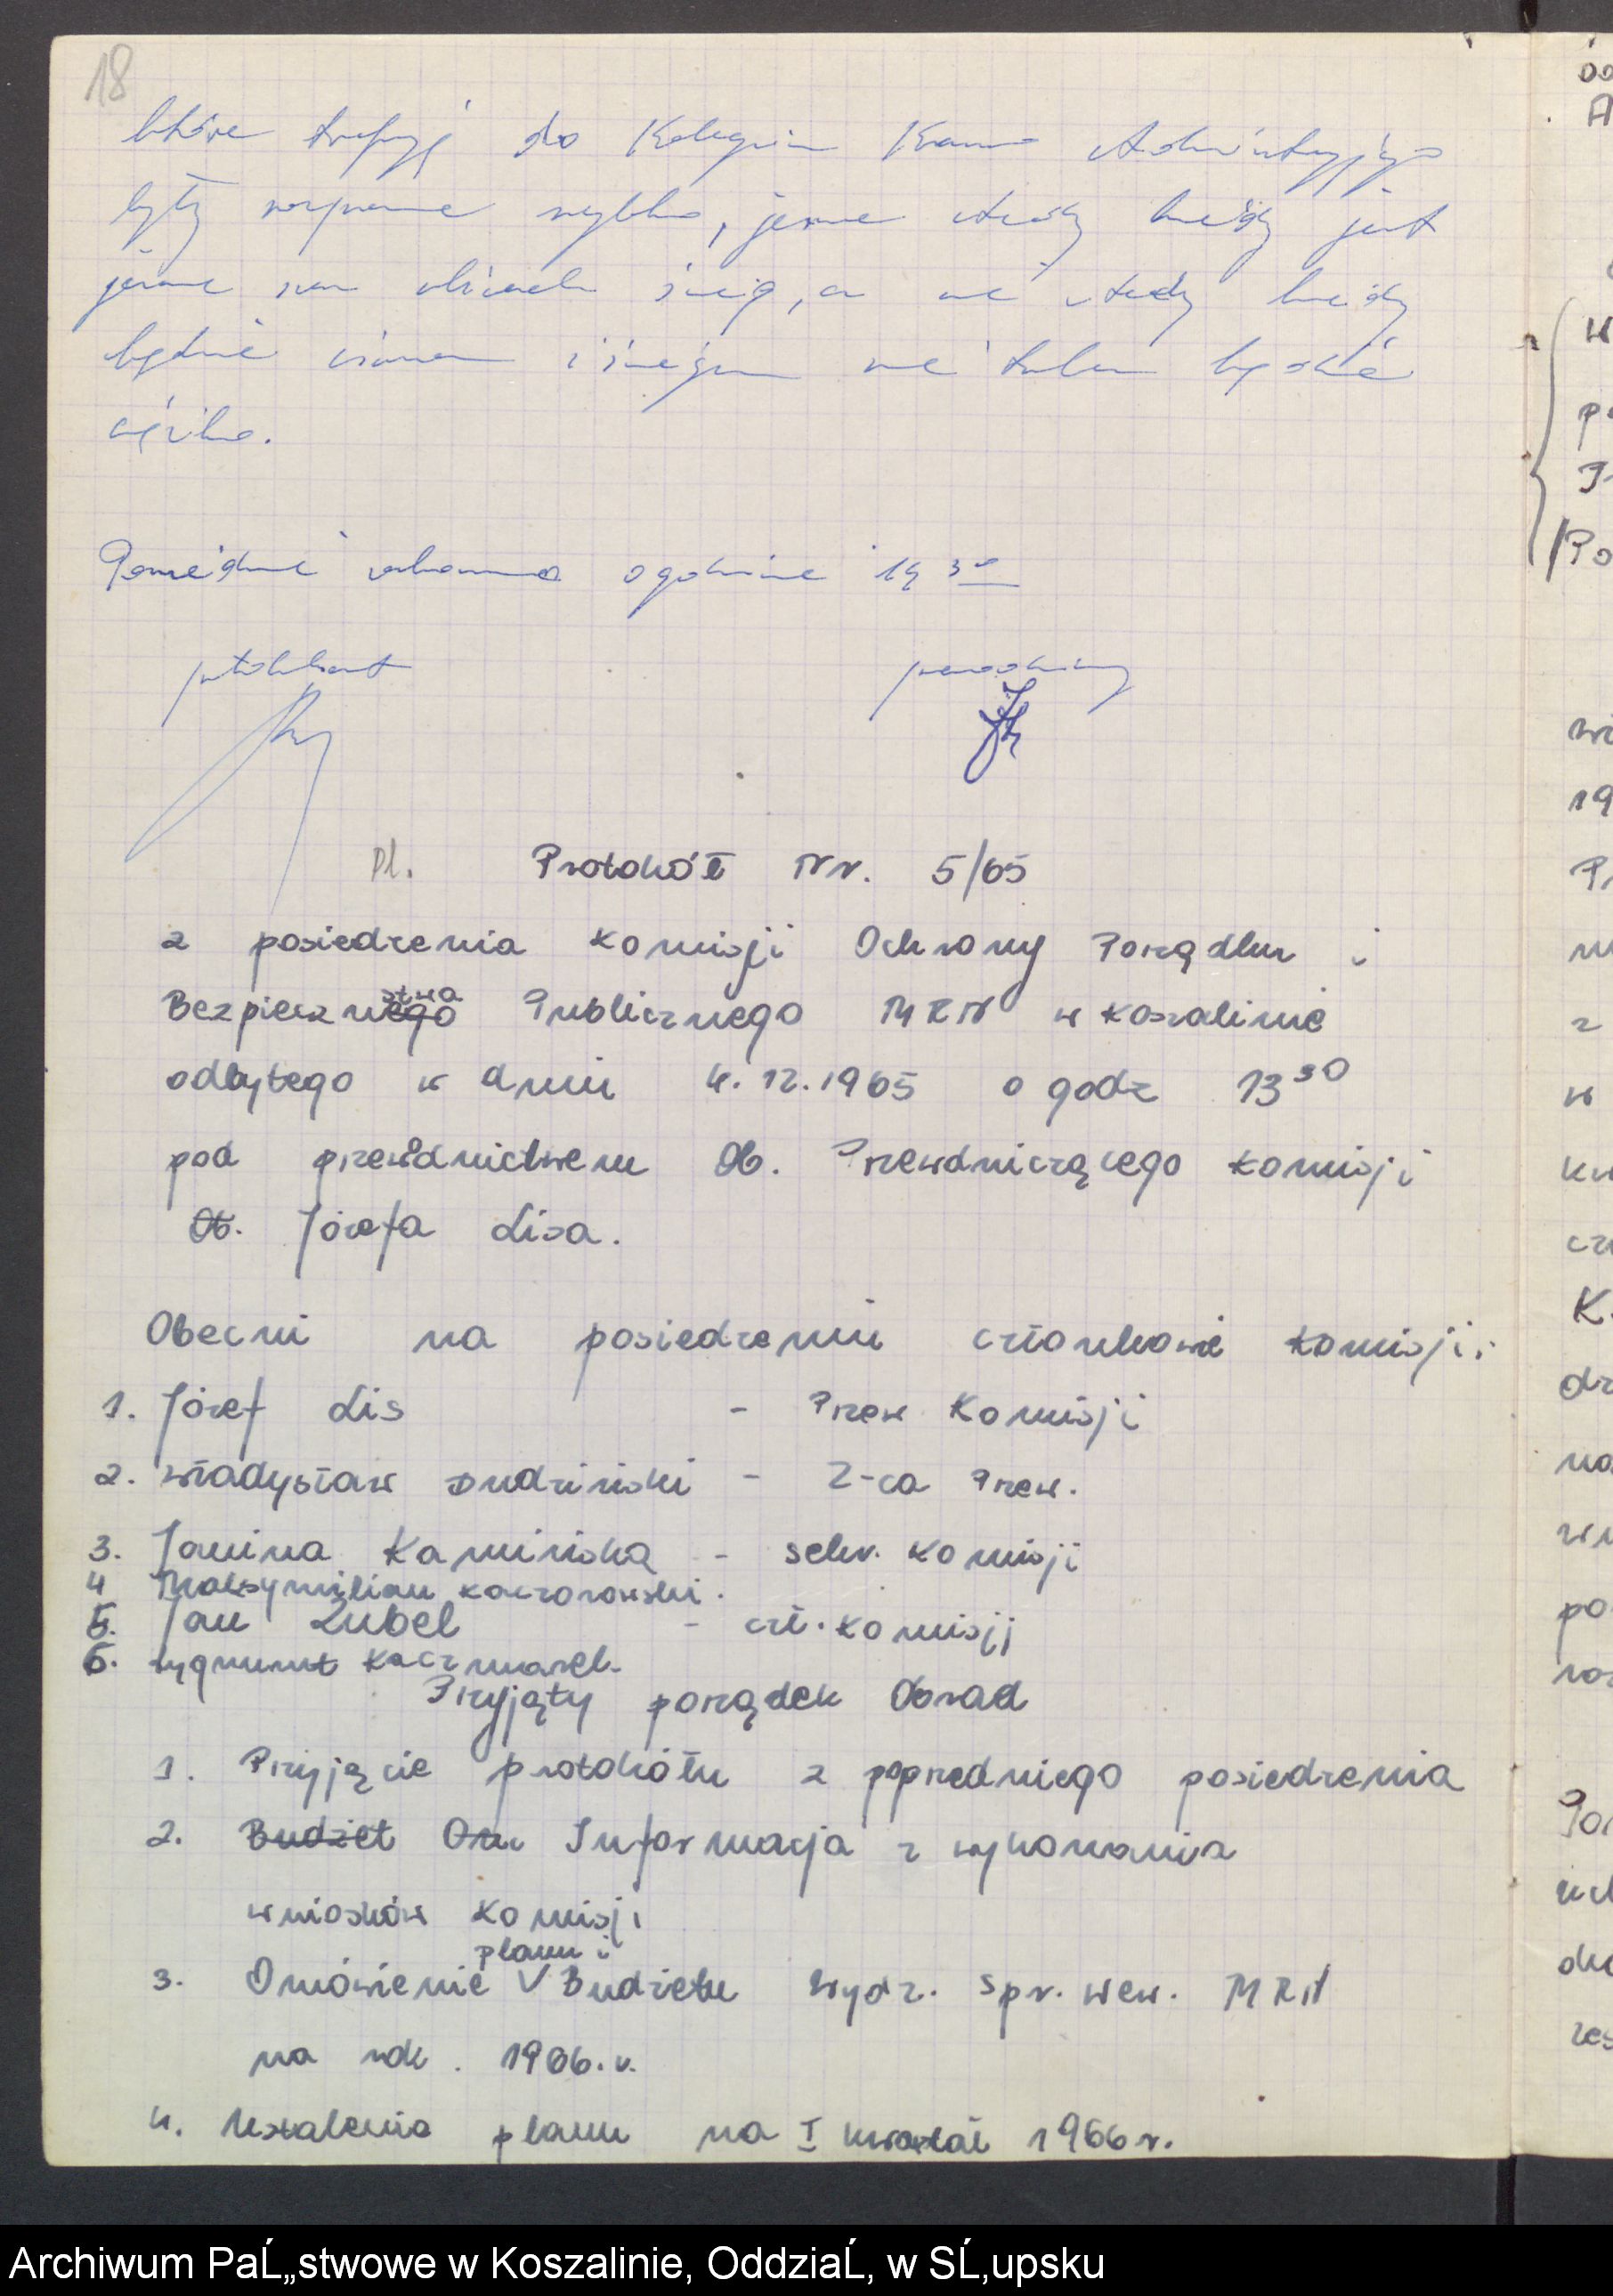 18
które trafiają do Kolegium Karno Administracyjnego
były rozpatrzone szybko, jeszcze wtedy kiedy jest
jeszcze na ulicach śnieg, a nie wtedy kiedy
będzie wiosna i śniegu nie będzie
Posiedzenie zakończono o godzinie 14 30
protokolant przewodniczący
pl. Protokół Nr. 5/65
z posiedzenia Komisji Ochrony Porządku i
Bezpieczeństwa Publicznego MRN w Koszalinie
odbytego w dniu 4.12.1965 o godz 13 30
pod przewodnictwem Ob. Przewdniczącego Komisji
Ob. Józefa Lisa.
Obecni na posiedzeniu członkowie Komisji:
1. Józef Lis - Przew Komisji
2. Władysław Dudziński - Z-ca Przew.
3. Janina Kamińska - sekr. Komisji
4 Maksymilian Kaczorowski.
5. Jan Łubel - czł. Komisji
6. Zygmunt Kaczmarek.
Przyjęty porządek Obrad
1. Przyjęcie protokółu z poprzedniego posiedzenia
2. Budżet Informacja z wykonania
wniosków Komisji
plan i
3. Omówienie V Budżetu Wydz. Spr. Wew. MRN
na rok. 1966.r.
4. Ustalenia planu na I kwartał 1966 r.
Archiwum PaĹ„stwowe w Koszalinie, OddziaĹ‚ w SĹ‚upsku